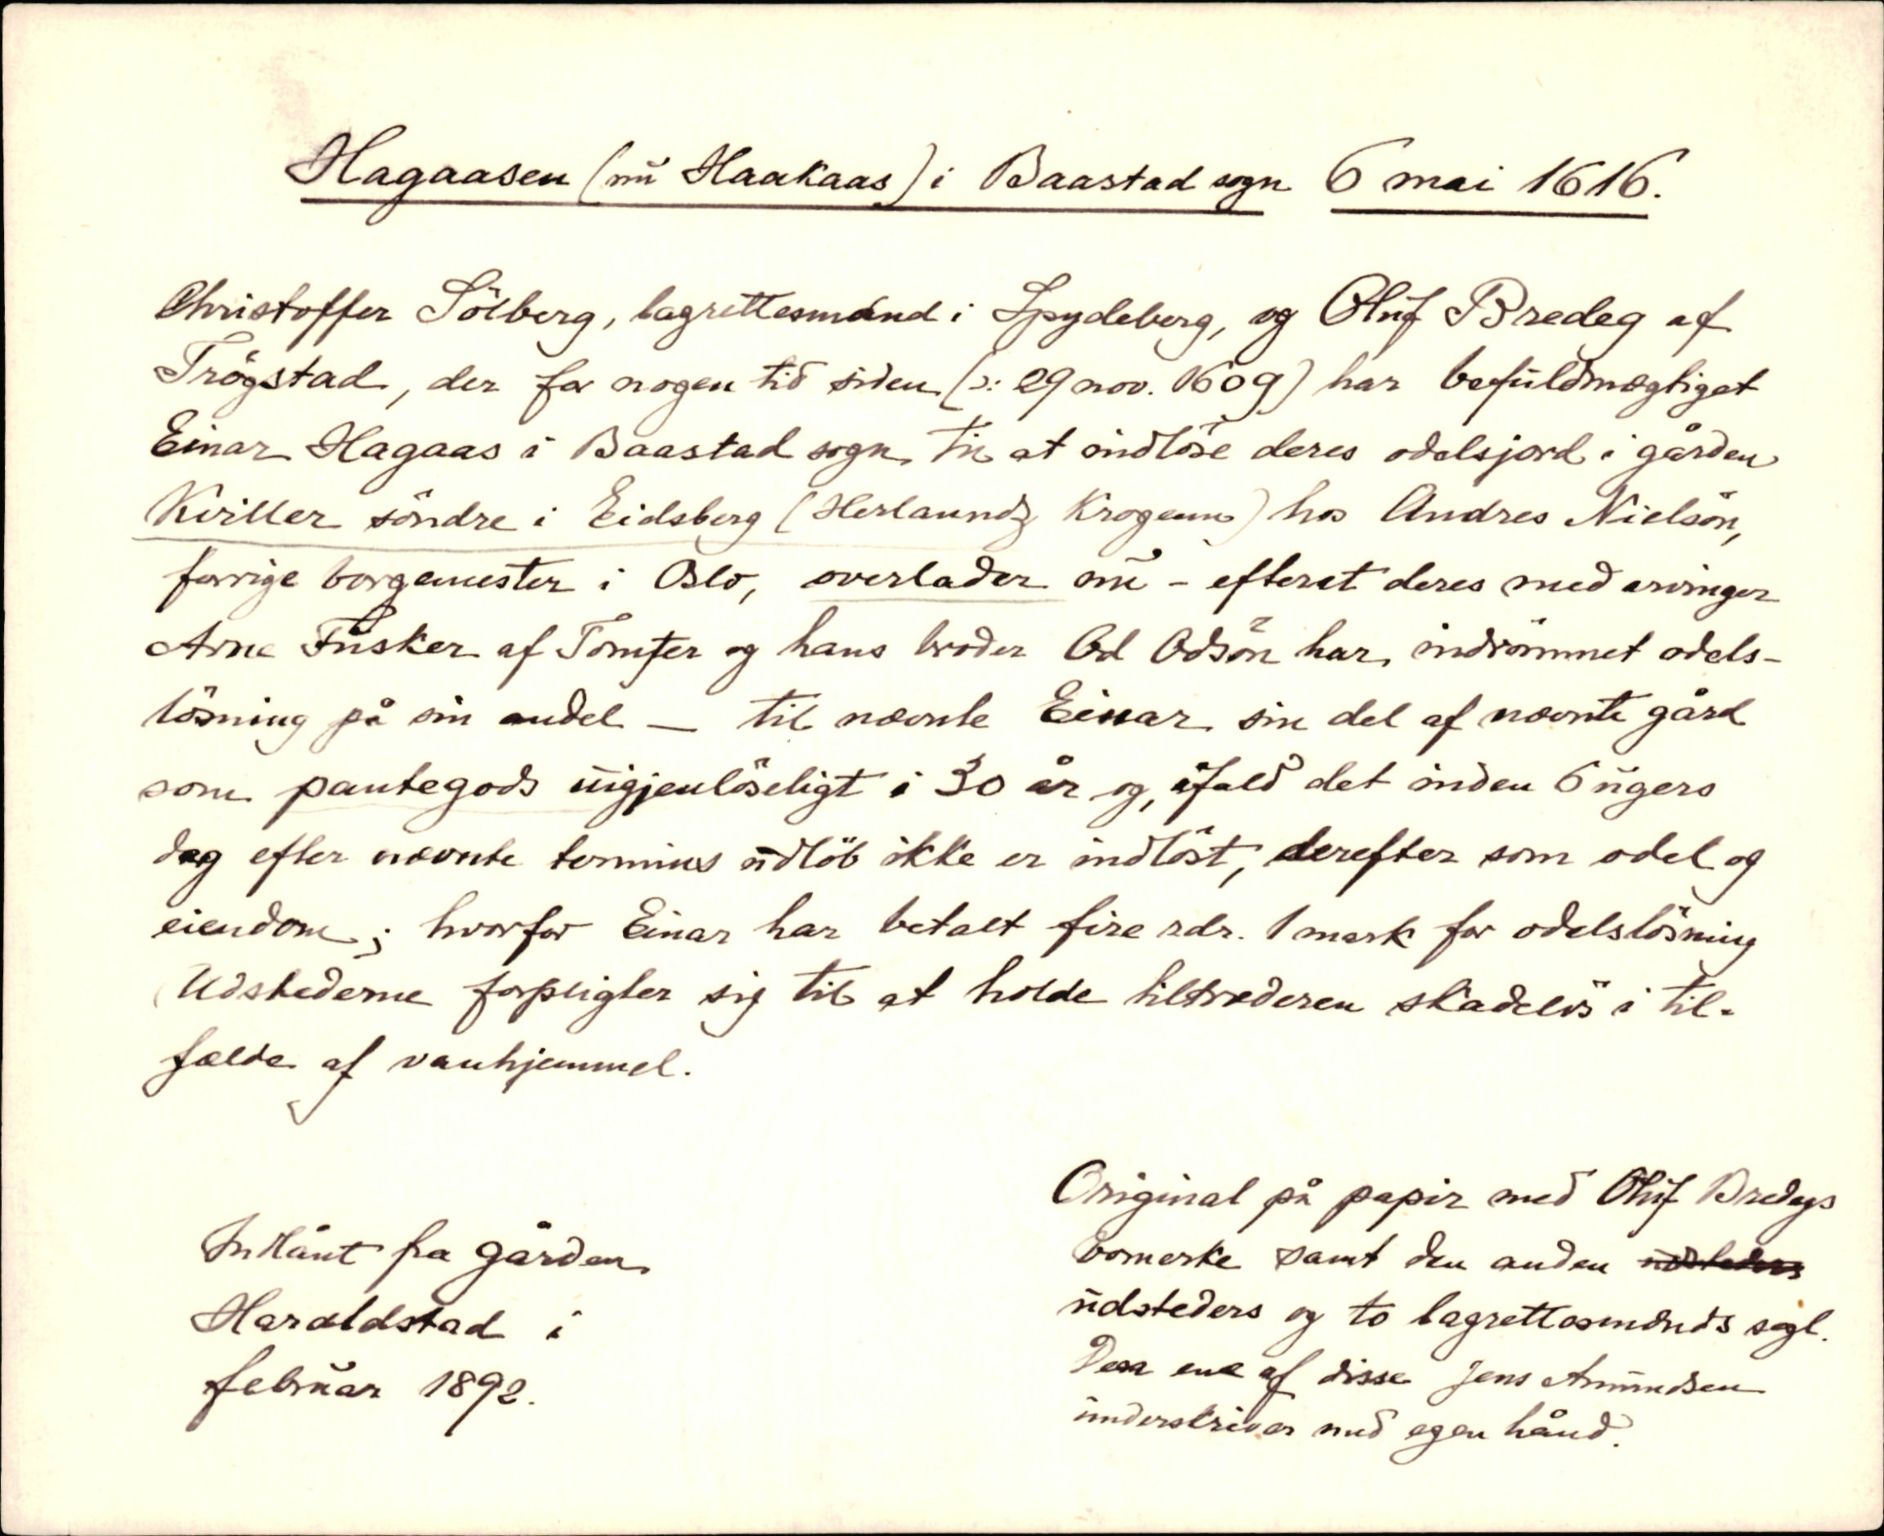 Hagaasen (nu Haakaas) i Baastad sogn 6 mai 1616.
Christoffer Sölberg, lagrettesmand i Spydeberg, og Oluf Bredeg af
Trögstad, der for nogen tid siden (ɔ: 29 nov. 1609) har befuldmægtiget
Einar Hagaas i Baastad sogn til at indlöse deres odelsjord i gården
Kviller söndre i Eidsberg (Herlaundz Krogenn) hos Andres Nielsön,
forrige borgemester i Oslo, overlader nu - efterat deres med arvinger
Arne Fusker af Tomter og hans broder Od Odsön har indrömmet odels-
lösning på sin andel — til nævnte Einar sin del af nævnte gård
som pantegods uigjenlöseligt i 30 år og, ifald det inden 6 ugers
dag efter nævnte termins udlöb ikke er indlöst, derefter som odel og
eiendom; hvorfor Einar har betalt fire rdr. 1 mark for odelslösning
Udstederne forpligter sig til at holde tiltræderen skadelös i til-
fælde af vanhjemmel.
Original på papir med Oluf Bredegs
bomerke samt den anden udsteders
udsteders og to lagrettesmænds segl.
Den ene af disse Jens Amundsen
underskriver med egen hånd.
Indlånt fra gården
Haraldstad i
februar 1892.